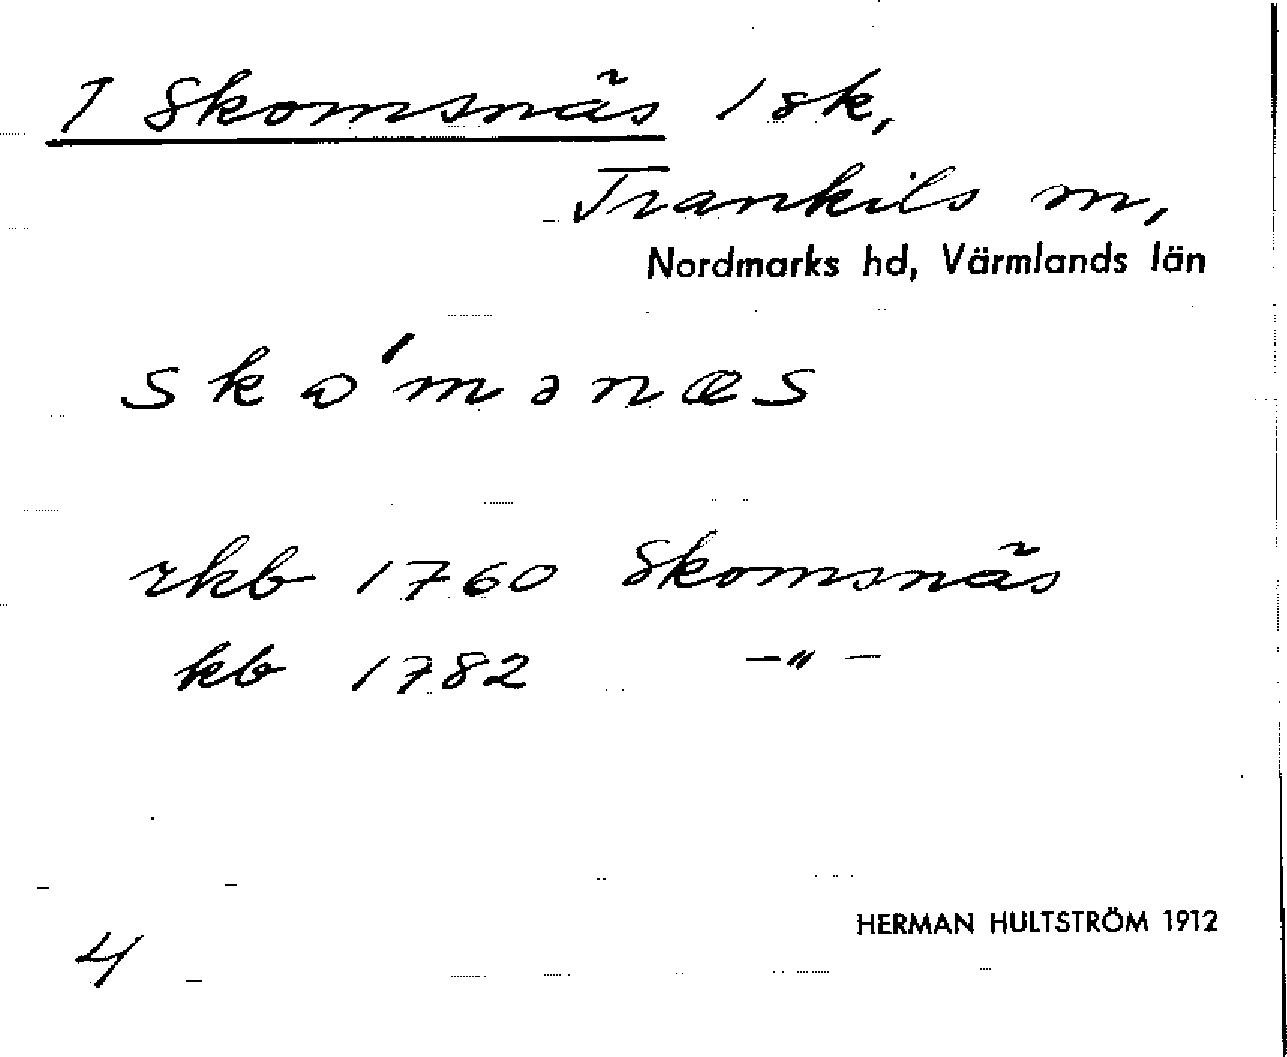 1 Skomsnäs 1 sk,
Trankils sn,
Nordmarks hd, Värmlands län
skɷ́mənæs
rkb 1760 Skomsnäs
kb 1782 –"–
HERMAN HULTSTRÖM 1912
4